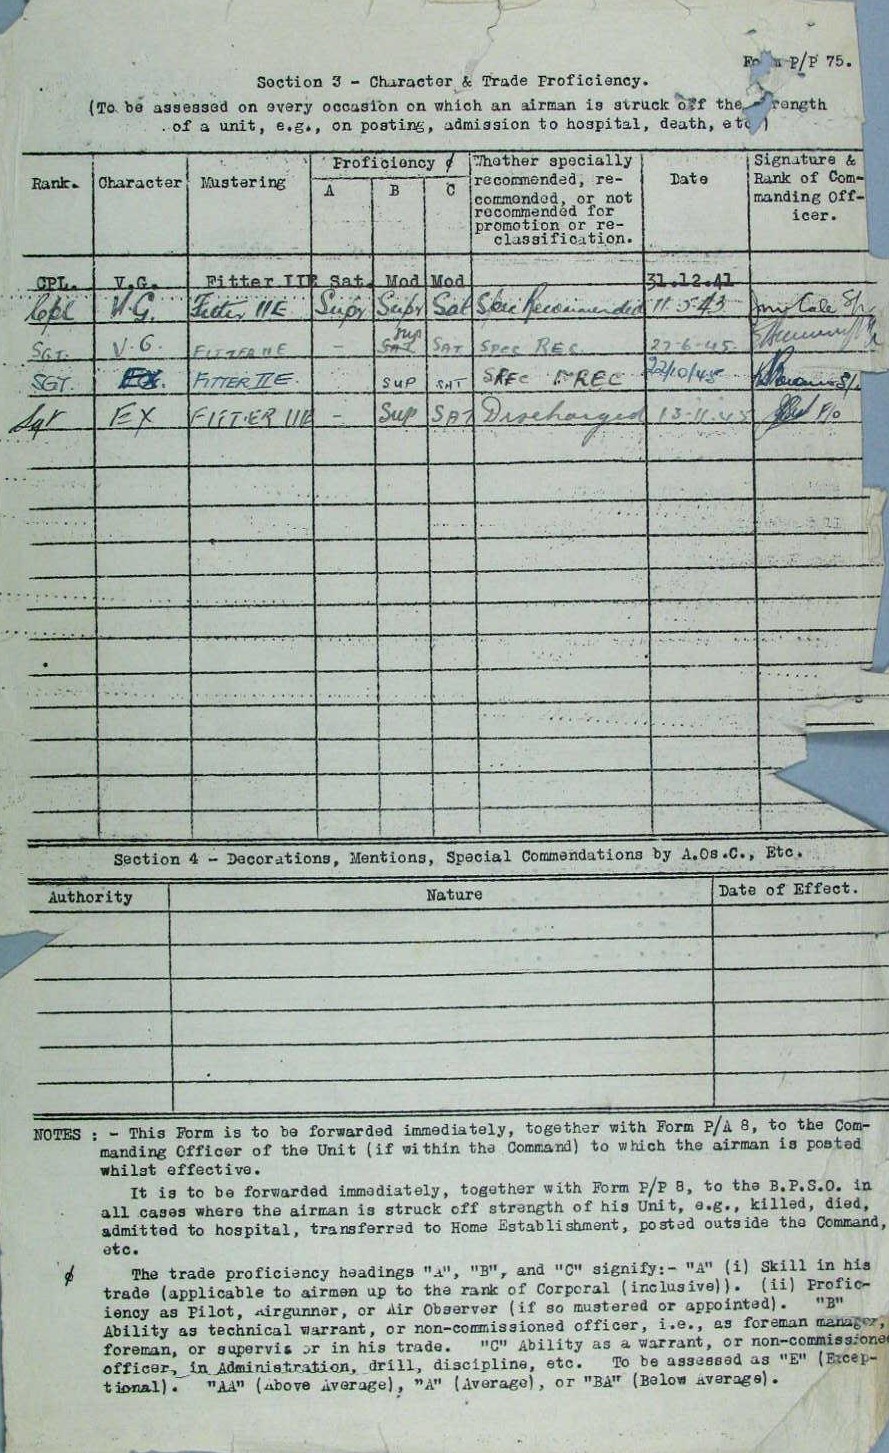 Form P/P 75.
Section 3 - Character & Trade Proficiency.
(To be assessed on every occasion on which an airman is struck off the strength
of a unit, e.g., on posting, admission to hospital, death, etc.)
Rank. Character Mustering Proficiency ∮ A B C Whether specially recommended, re-commended, or not recommended for promotion or re-classification. Date Signature & Rank of Com-manding Off-icer.
CPL. V.G. Fitter IIE Sat. Mod Mod 31.12.41
Cpl V.G. Fitter IIE Supr Supr Sat Recommended 11.5.43 Cale
SGT. V.G. FITTER IIE - Sup SAT SAT SPEC REC. 27-6-45.
SGT EX. FITTER IIE. SUP SAT SPEC REC 22/10/45
Sgt EX FITTER IIE - Sup SAT Discharged 13-11-45 F/O
Section 4 - Decorations, Mentions, Special Commendations by A.Os.C., Etc.
Authority Nature Date of Effect.
NOTES : - This Form is to be forwarded immediately, together with Form P/A 8, to the Com-
manding Officer of the Unit (if within the Command) to which the airman is posted
whilst effective.
It is to be forwarded immediately, together with Form P/P 8, to the B.P.S.O. in
all cases where the airman is struck off strength of his Unit, e.g., killed, died,
admitted to hospital, transferred to Home Establishment, posted outside the Command,
etc.
∮ The trade proficiency headings "A", "B", and "C" signify:- "A" (i) Skill in his
trade (applicable to airmen up to the rank of Corporal (inclusive)). (ii) Profic-
iency as Pilot, Airgunner, or Air Observer (if so mustered or appointed). "B"
Ability as technical warrant, or non-commissioned officer, i.e., as foreman manager,
foreman, or supervisor in his trade. "C" Ability as a warrant, or non-commissioned
officer, in Administration, drill, discipline, etc. To be assessed as "E" (Excep-
tional). "AA" (Above Average), "A" (Average), or "BA" (Below Average).